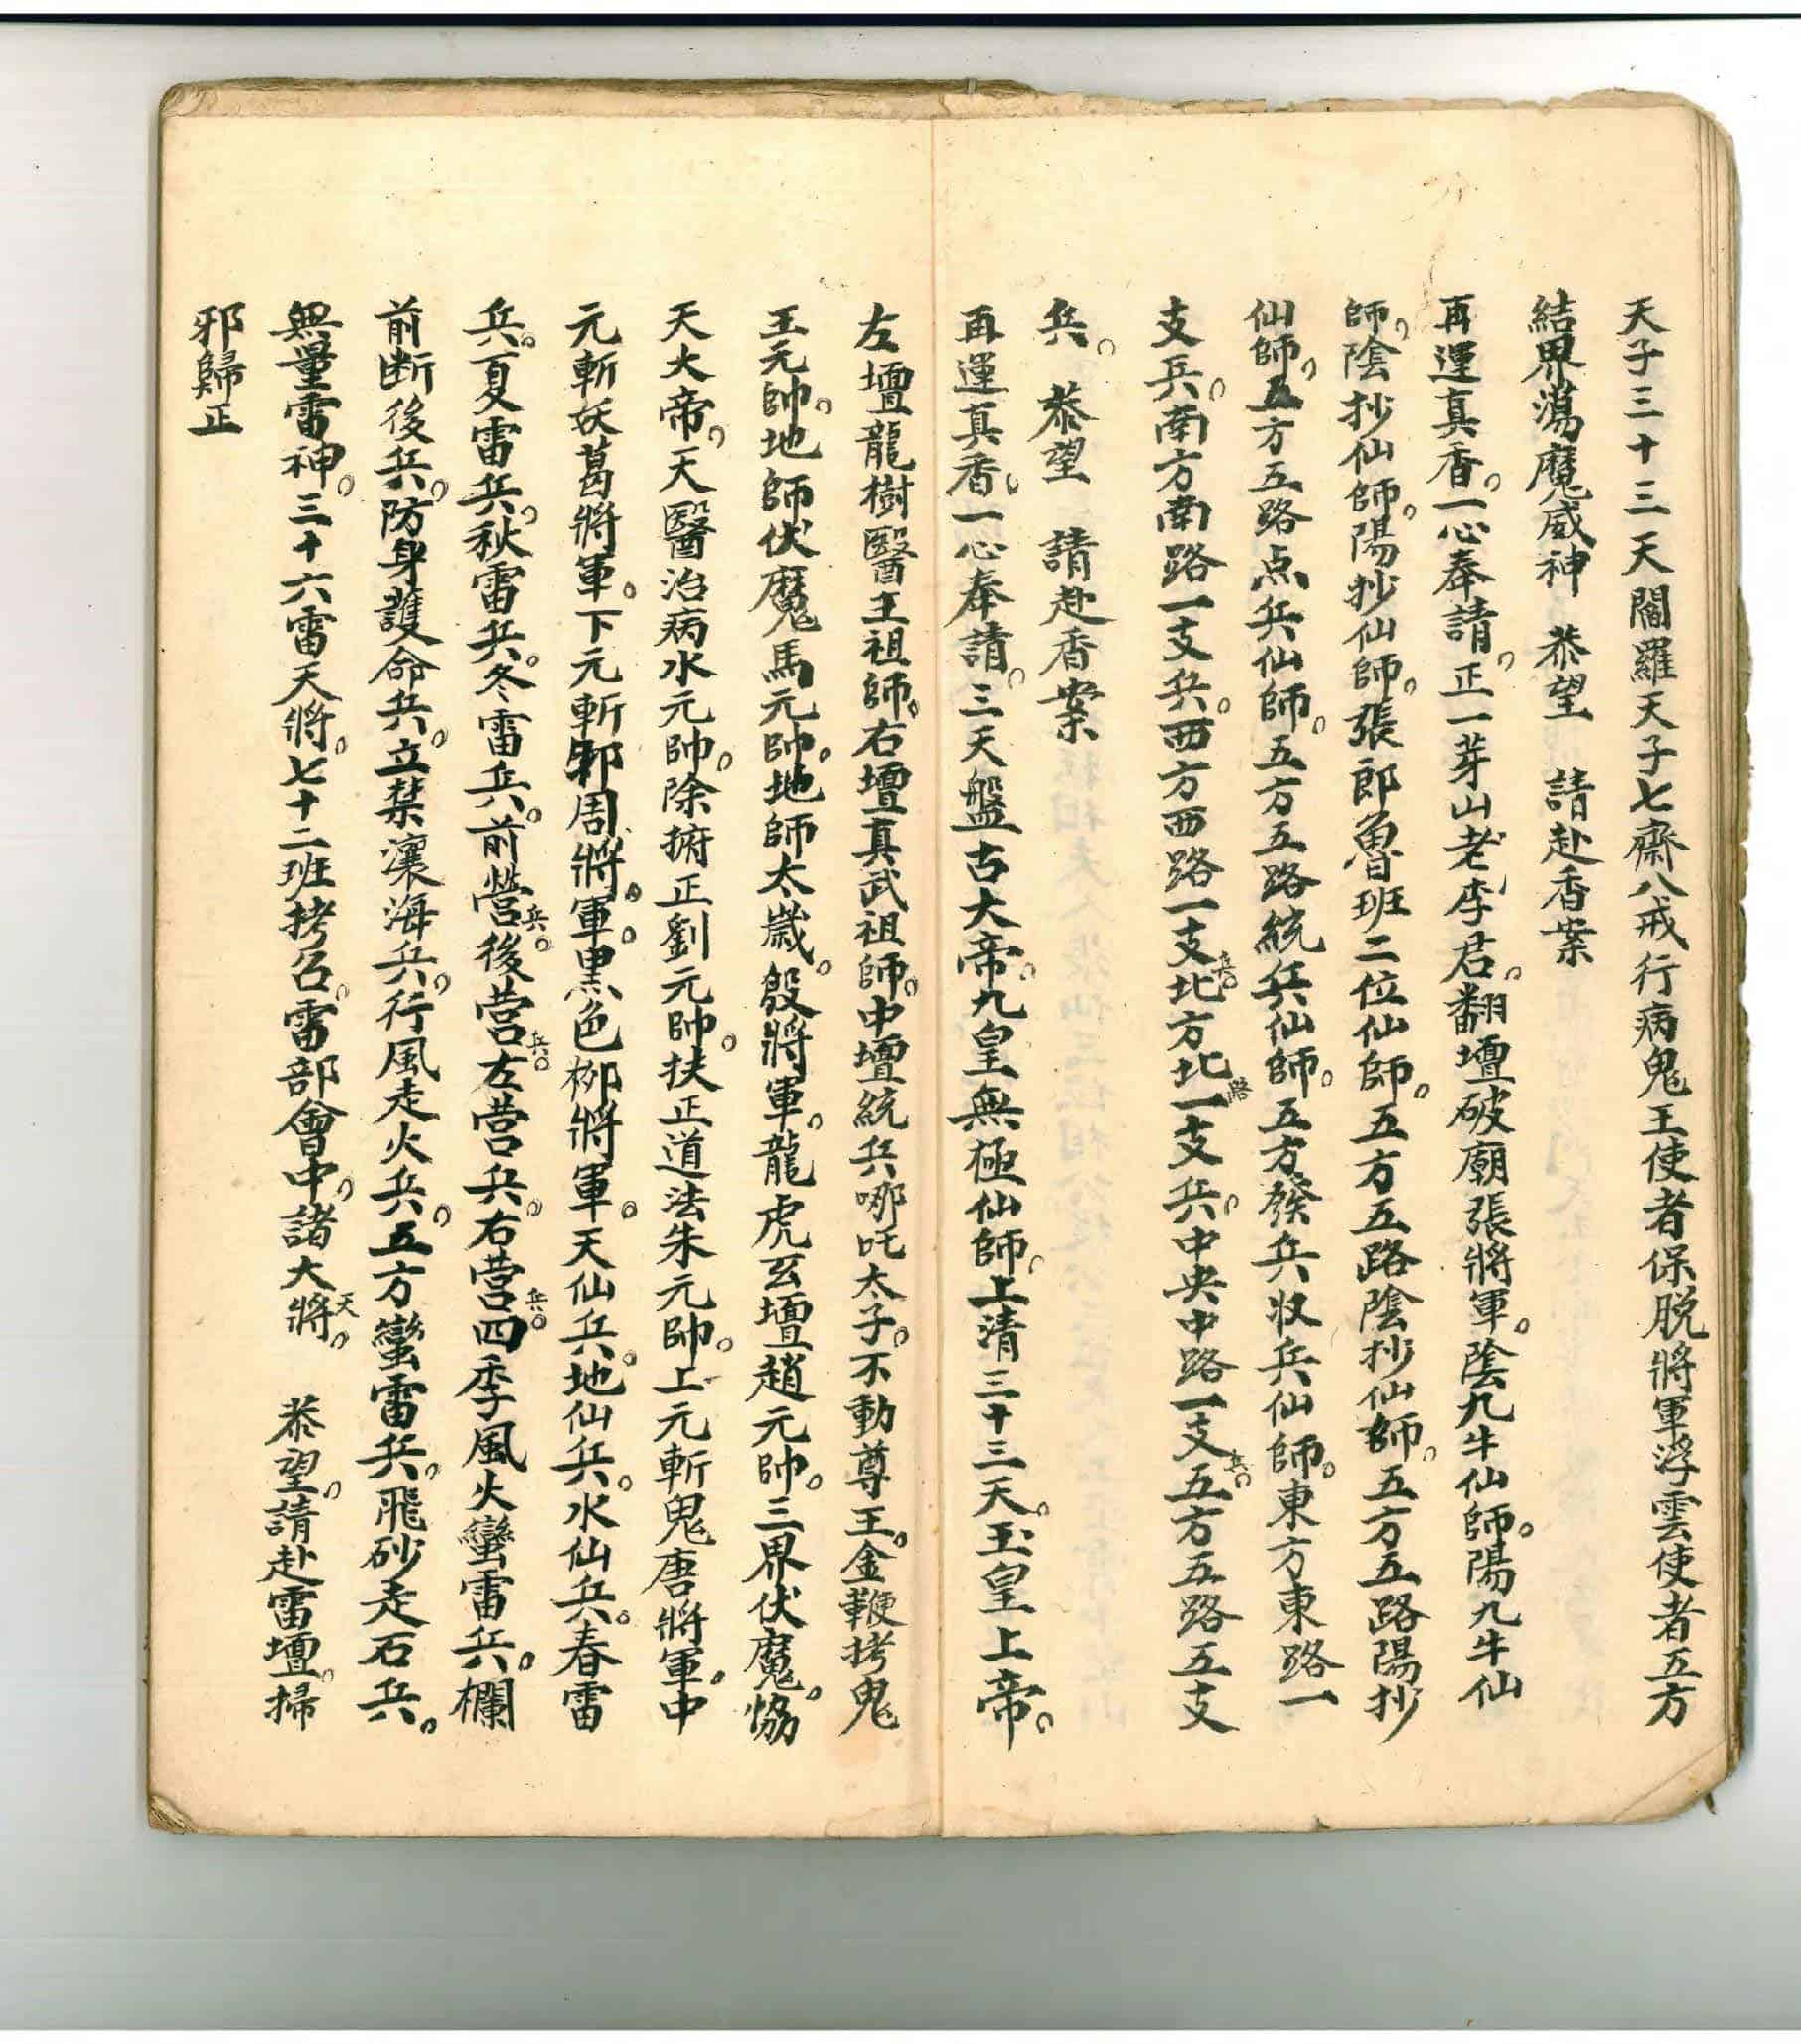 天子三十三天閻羅天子七齋八戒行病鬼王使者保脱將軍浮雲使者五方
結界蕩魔威神　恭望　請赴香案
再運真香。一心奉請。正一芽山老李君。翻壇破廟張將軍。陰九牛仙師。陽九牛仙
師。陰抄仙師。陽抄仙師。張郎魯班二位仙師。五方五路陰抄仙師。五方五路陽抄
仙師。五方五路点兵仙師。五方五路統兵仙師。五方發兵收兵仙師。東方東路一
支兵。南方南路一支兵。西方西路一支兵。北方北路一支兵。中央中路一支兵。五方五路五支
兵。　恭望　請赴香案
再運真香。一心奉請。三天盤古大帝。九皇無極仙師。上清三十三天。玉皇上帝。
左壇龍樹醫王祖師。右壇真武祖師。中壇統兵哪吒太子。不動尊王。金鞭拷鬼
王元帥。地師伏魔馬元帥。地師太歲。殷將軍。龍虎玄壇趙元帥。三界伏魔。協
天大帝。天醫治病水元帥。除擀正劉元帥。扶正道法朱元帥。上元斬鬼唐將軍。中
元斬妖葛將軍。下元斬邪周將軍。黑色柳將軍。天仙兵。地仙兵。水仙兵。春雷
兵。夏雷兵。秋雷兵。冬雷兵。前營兵。後营兵。左营兵。右营兵。四季風火蠻雷兵。欄
前断後兵。防身護命兵。立禁瀼海兵。行風走火兵。五方蠻雷兵。飛砂走石兵。
無量雷神。三十六雷天將。七十二班拷召。雷部會中。諸大天將。　恭望。請赴雷壇。掃
邪歸正